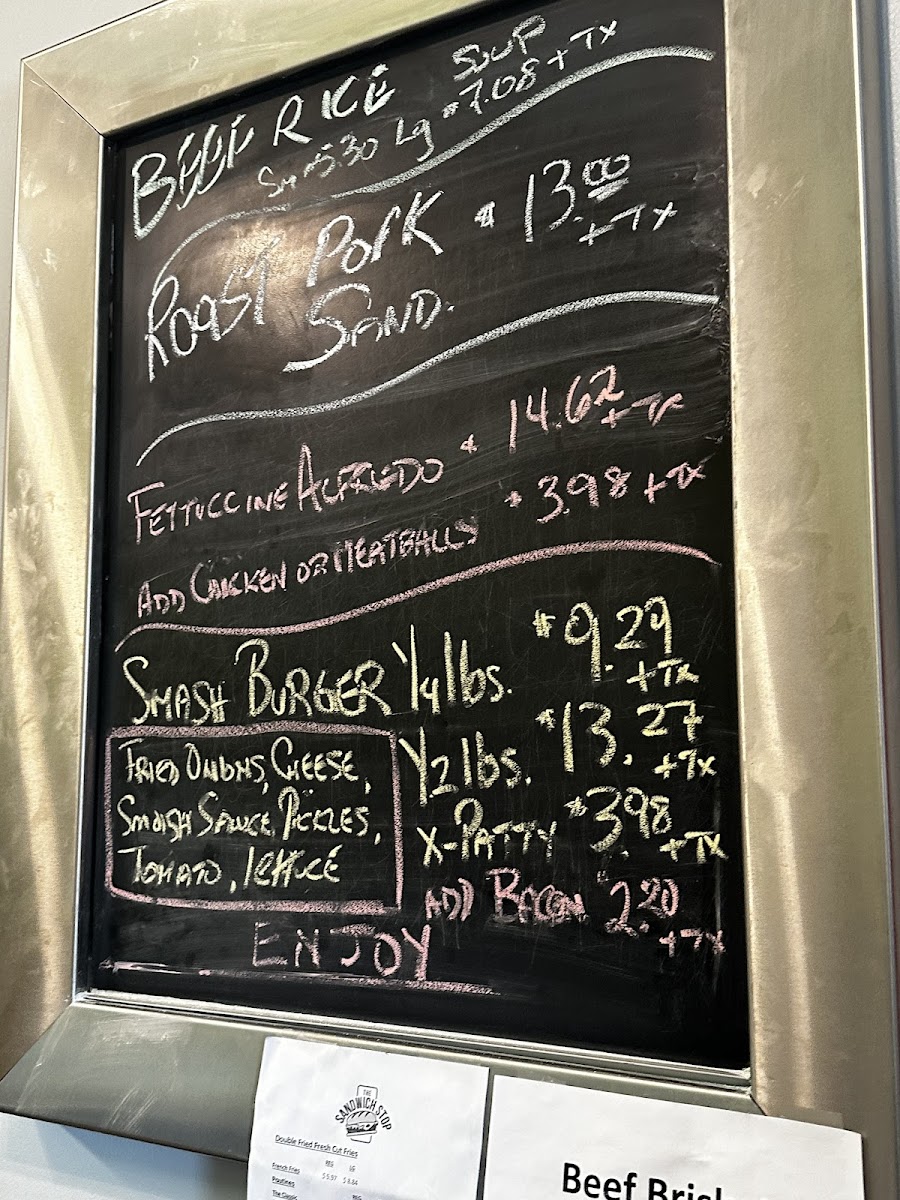 BEEF RICE SOUP
Sm $5.30 Lg $7.08 + Tx
ROAST PORK $13.00
SAND. + Tx
FETTUCCINE ALFREDO $14.62 + Tx
ADD CHICKEN OR MEATBALLS $3.98 + Tx
SMASH BURGER 1/4 lbs. $9.29 + Tx
1/2 lbs. $13.27 + Tx
X-PATTY $3.98 + Tx
ADD BACON 2.20 + Tx
FRIED ONIONS, CHEESE,
SMASH SAUCE, PICKLES,
TOMATO, LETTUCE
ENJOY
THE
SANDWICH STOP
Double Fried Fresh Cut Fries
REG LG
French Fries $5.97 $8.84
Poutines
The Classic REG
Beef Bris